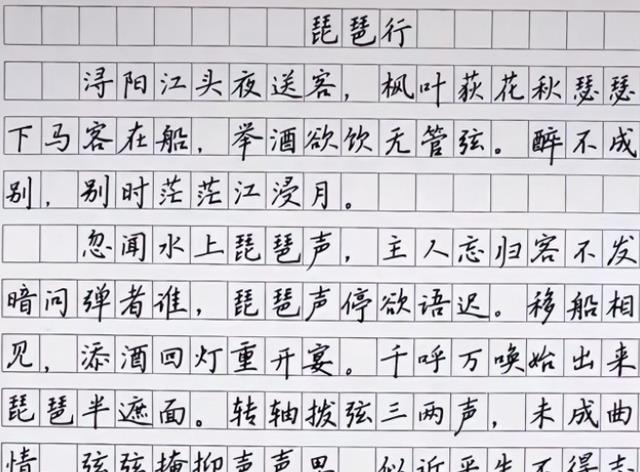 琵琶行
浔阳江头夜送客，枫叶荻花秋瑟瑟
下马客在船，举酒欲饮无管弦。醉不成
别，别时茫茫江浸月。
忽闻水上琵琶声，主人忘归客不发
暗问弹者谁，琵琶声停欲语迟。移船相
见，添酒回灯重开宴。千呼万唤始出来
琵琶半遮面。转轴拨弦三两声，未成曲
情 弦弦掩抑声声思 似近平生不得志